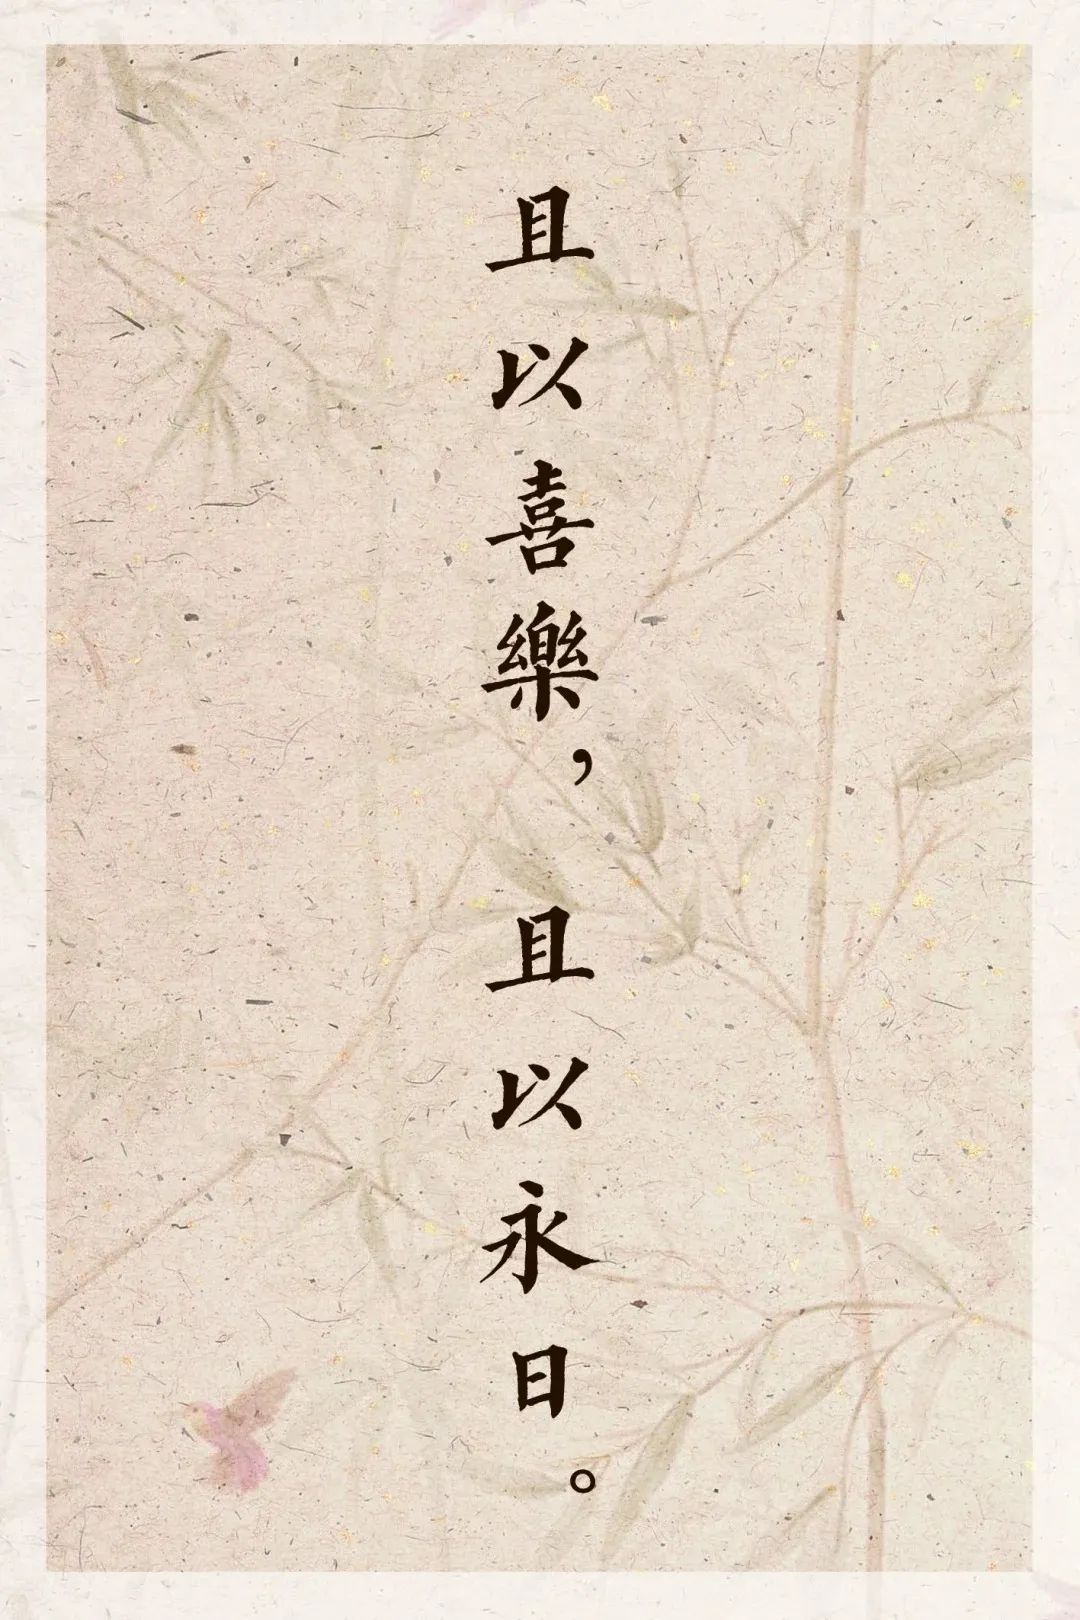 且以喜樂，且以永日。